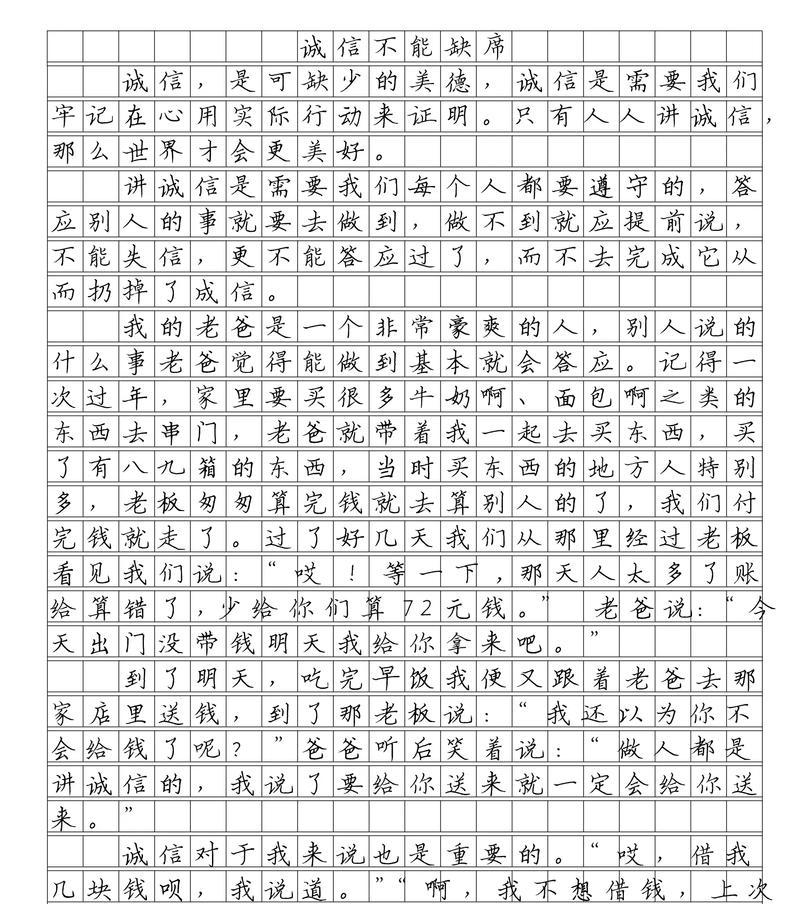 诚信不能缺席
诚信，是可缺少的美德，诚信是需要我们
牢记在心用实际行动来证明。只有人人讲诚信，
那么世界才会更美好。
讲诚信是需要我们每个人都要遵守的，答
应别人的事就要去做到，做不到就应提前说，
不能失信，更不能答应过了，而不去完成它从
而扔掉了成信。
我的老爸是一个非常豪爽的人，别人说的
什么事老爸觉得能做到基本就会答应。记得一
次过年，家里要买很多牛奶啊、面包啊之类的
东西去串门，老爸就带着我一起去买东西，买
了有八九箱的东西，当时买东西的地方人特别
多，老板匆匆算完钱就去算别人的了，我们付
完钱就走了。过了好几天我们从那里经过老板
看见我们说：“哎！等一下，那天人太多了账
给算错了，少给你们算72元钱。” 老爸说：“今
天出门没带钱明天我给你拿来吧。”
到了明天，吃完早饭我便又跟着老爸去那
家店里送钱，到了那老板说：“我还以为你不
会给钱了呢？”爸爸听后笑着说：“做人都是
讲诚信的，我说了要给你送来就一定会给你送
来。”
诚信对于我来说也是重要的。“哎，借我
几块钱呗，我说道。”“啊，我不想借钱，上次